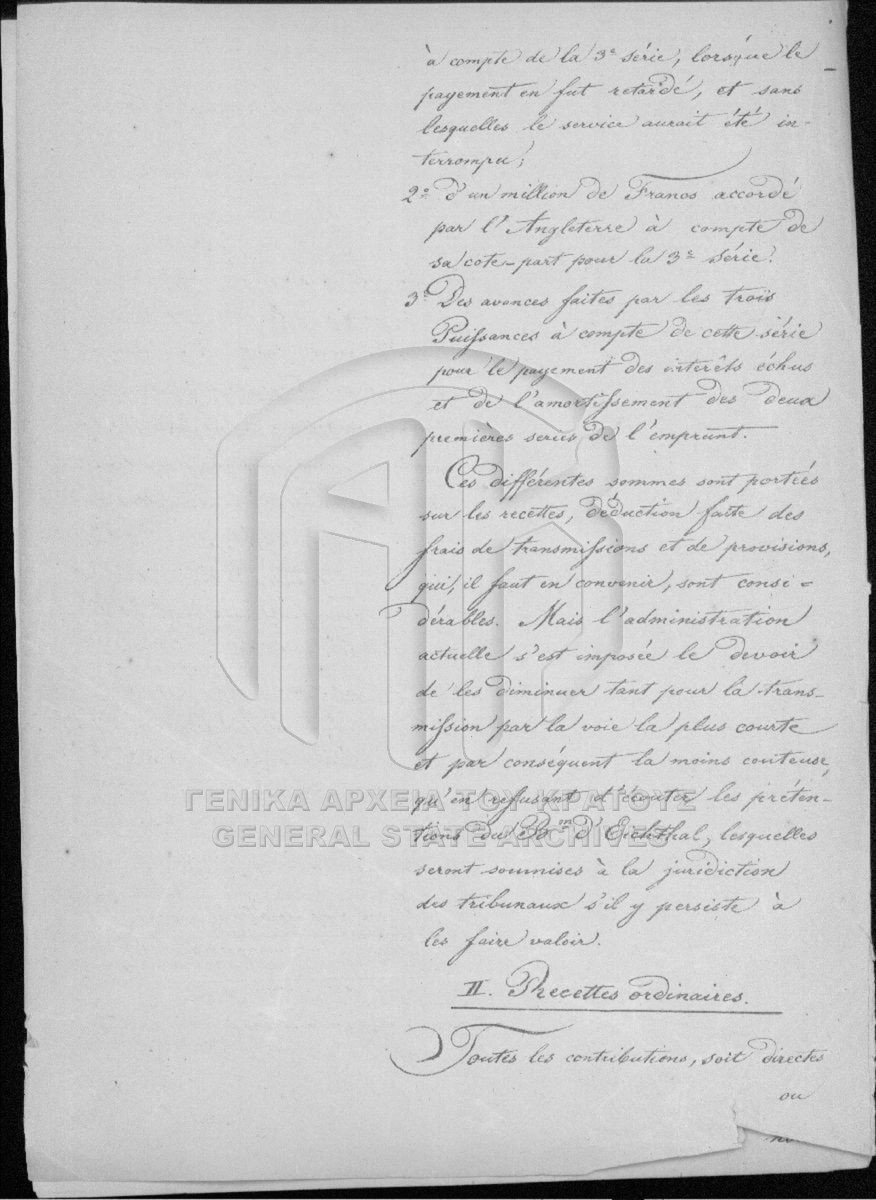 à compte de la 3e série, lorsque le
payement en fut retardé, et sans
lesquelles le service aurait été in-
terrompu;
2o d'un million de Francs accordé
par l'Angleterre à compte de
sa cote-part pour la 3e série.
3o Des avances faites par les trois
Puissances à compte de cette série
pour le payement des intérêts échus
et de l'amortissement des deux
premières series de l'emprunt.
Ces différentes sommes sont portées
sur les recettes, déduction faite des
frais de transmissions et de provisions,
qui, il faut en convenir, sont consi=
dérables. Mais l'administration
actuelle s'est imposée le devoir
de les diminuer tant pour la trans-
mission par la voie la plus courte
et par conséquent la moins couteuse,
qu'en refusant d'écouter les préten-
tions du Bon d'Eichthal, lesquelles
seront soumises à la juridiction
des tribunaux s'il y persiste à
les faire valoir.
II. Recettes ordinaires.
Toutes les contributions, soit directes
ou
ΓΕΝΙΚΑ ΑΡΧΕΙΑ ΤΟΥ ΚΡΑΤΟΥΣ
GENERAL STATE ARCHIVES